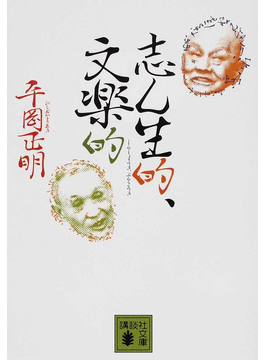 志ん生的、
文楽的
平岡正明
講談社文庫